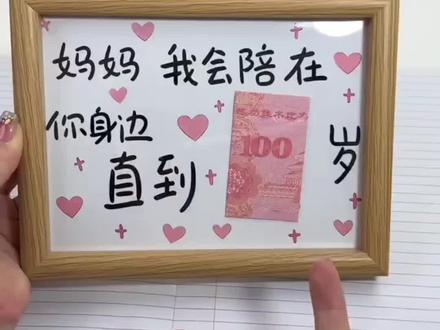 妈妈 我会陪在
你身边
直到 100 岁